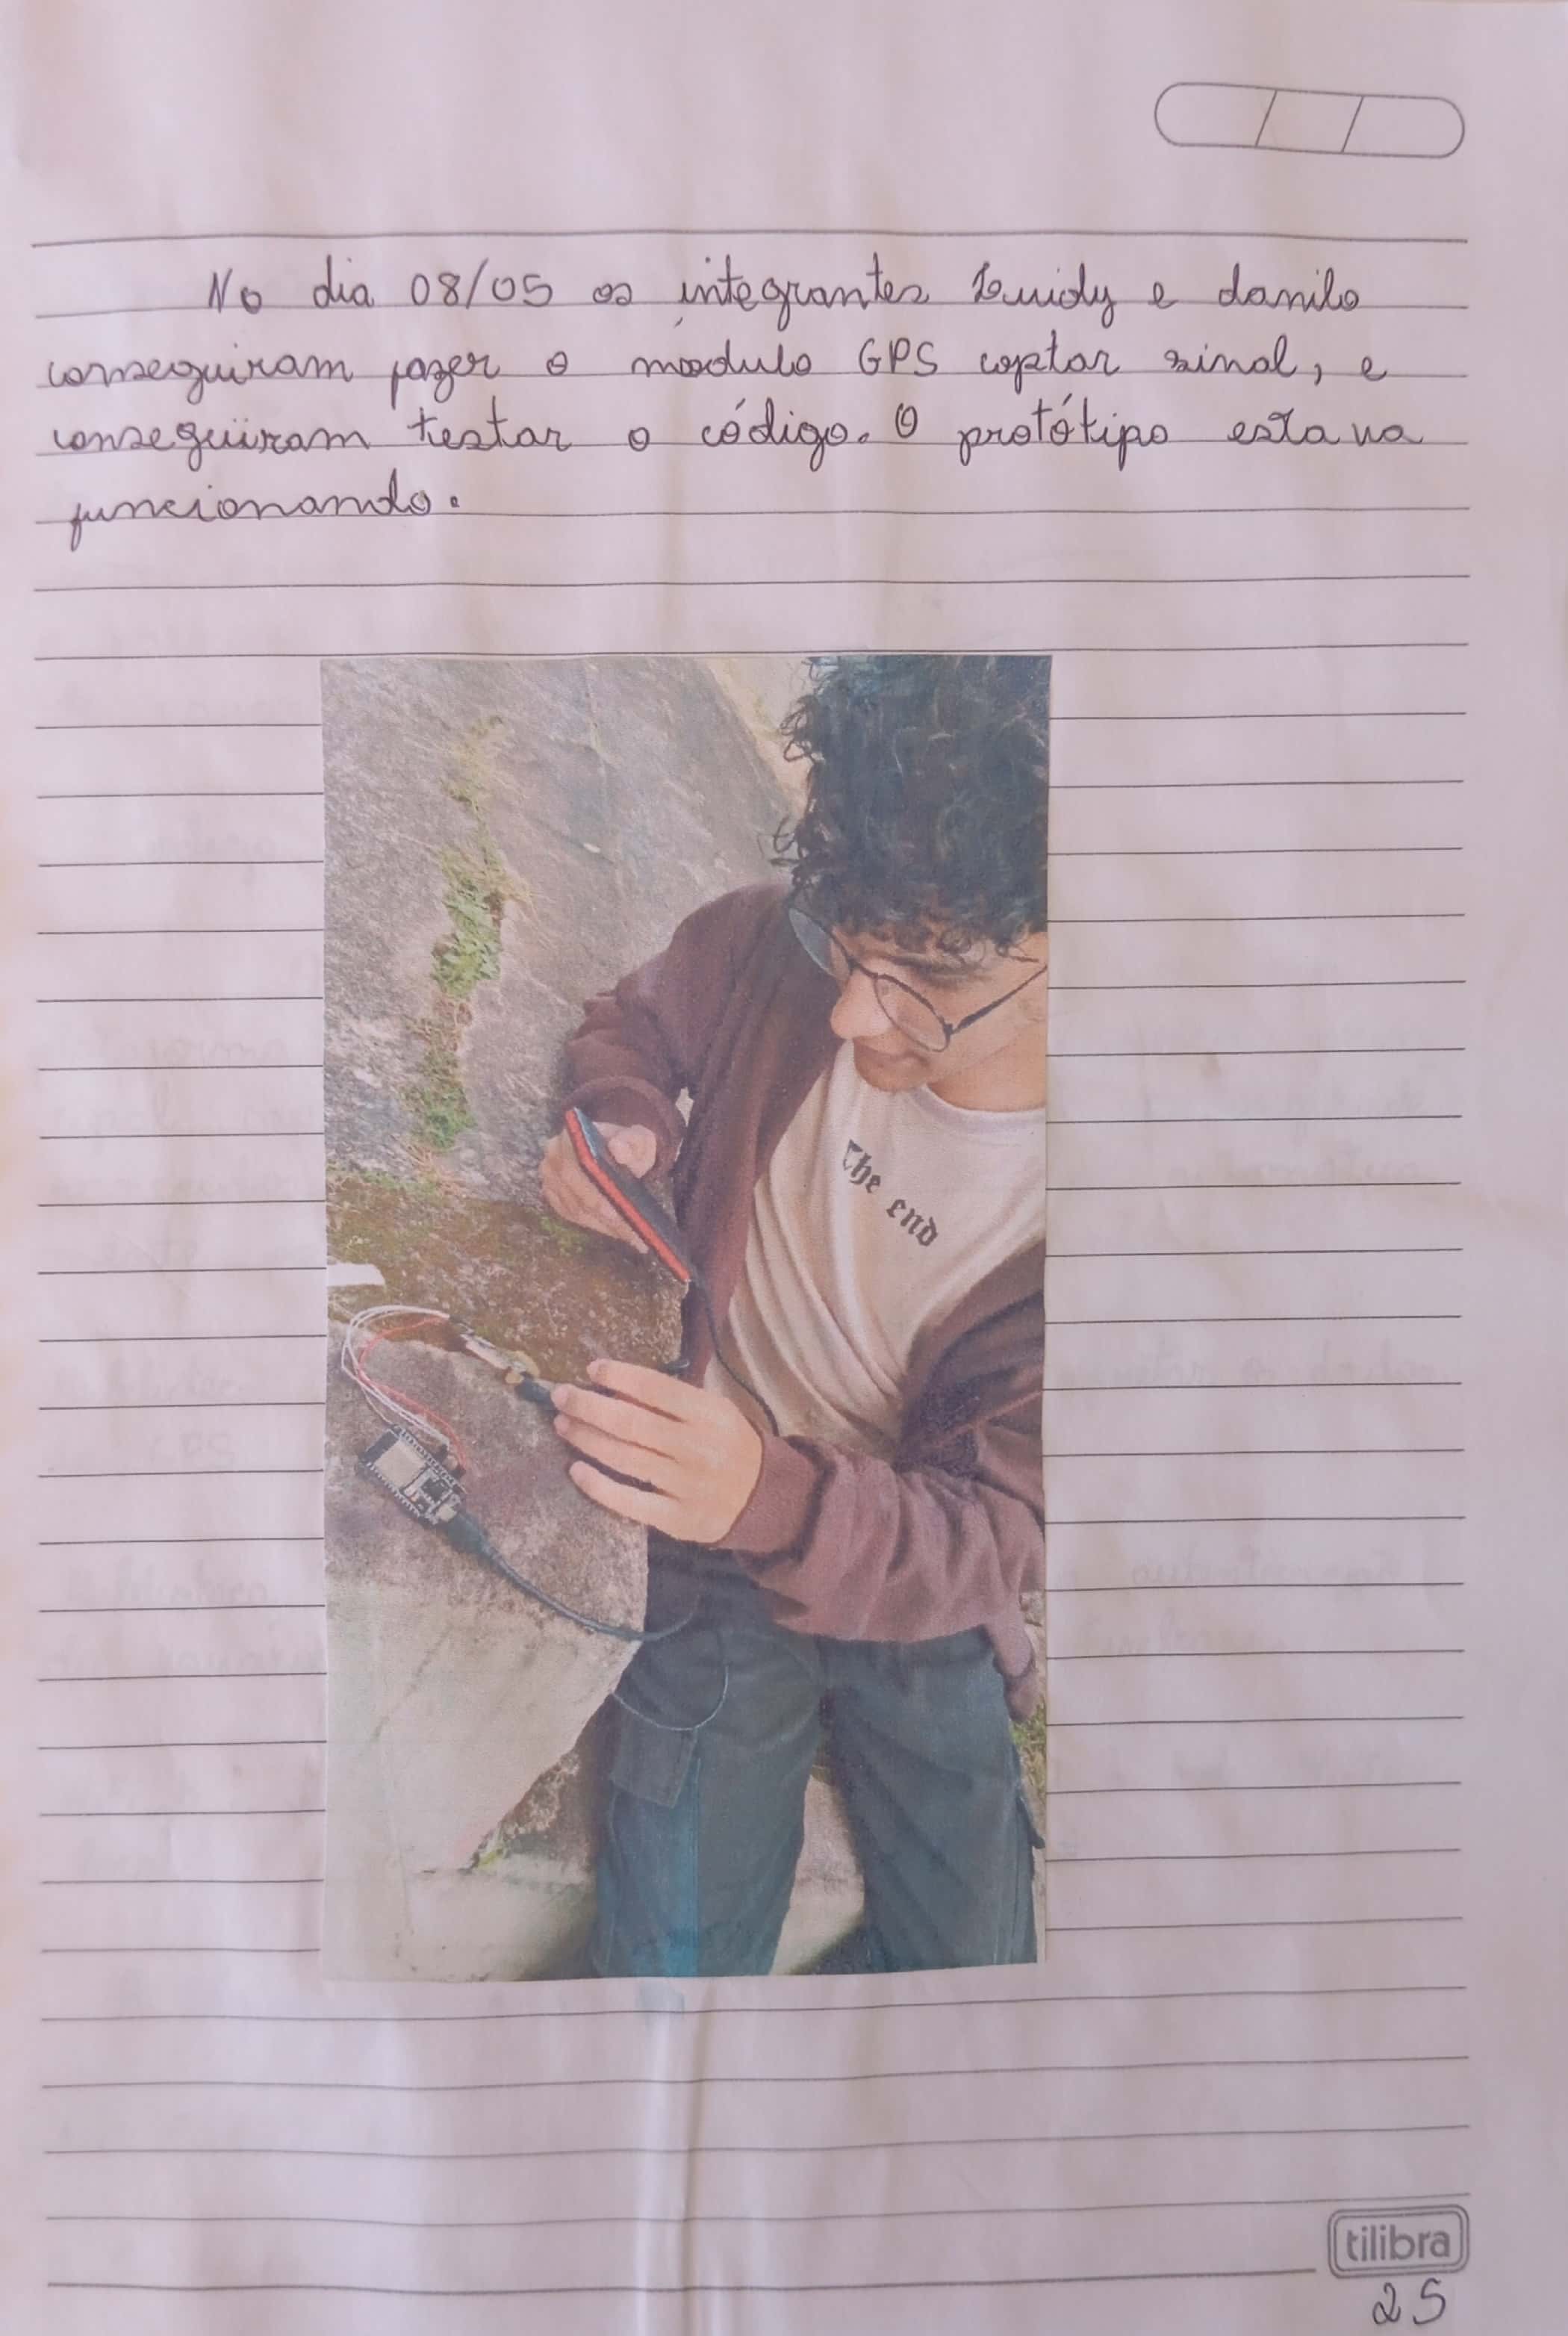 No dia 08/05 os integrantes e danilo
conseguiram fazer o módulo GPS captar sinal, e
conseguiram testar o código. O protótipo estava
funcionando.
The end
tilibra
25